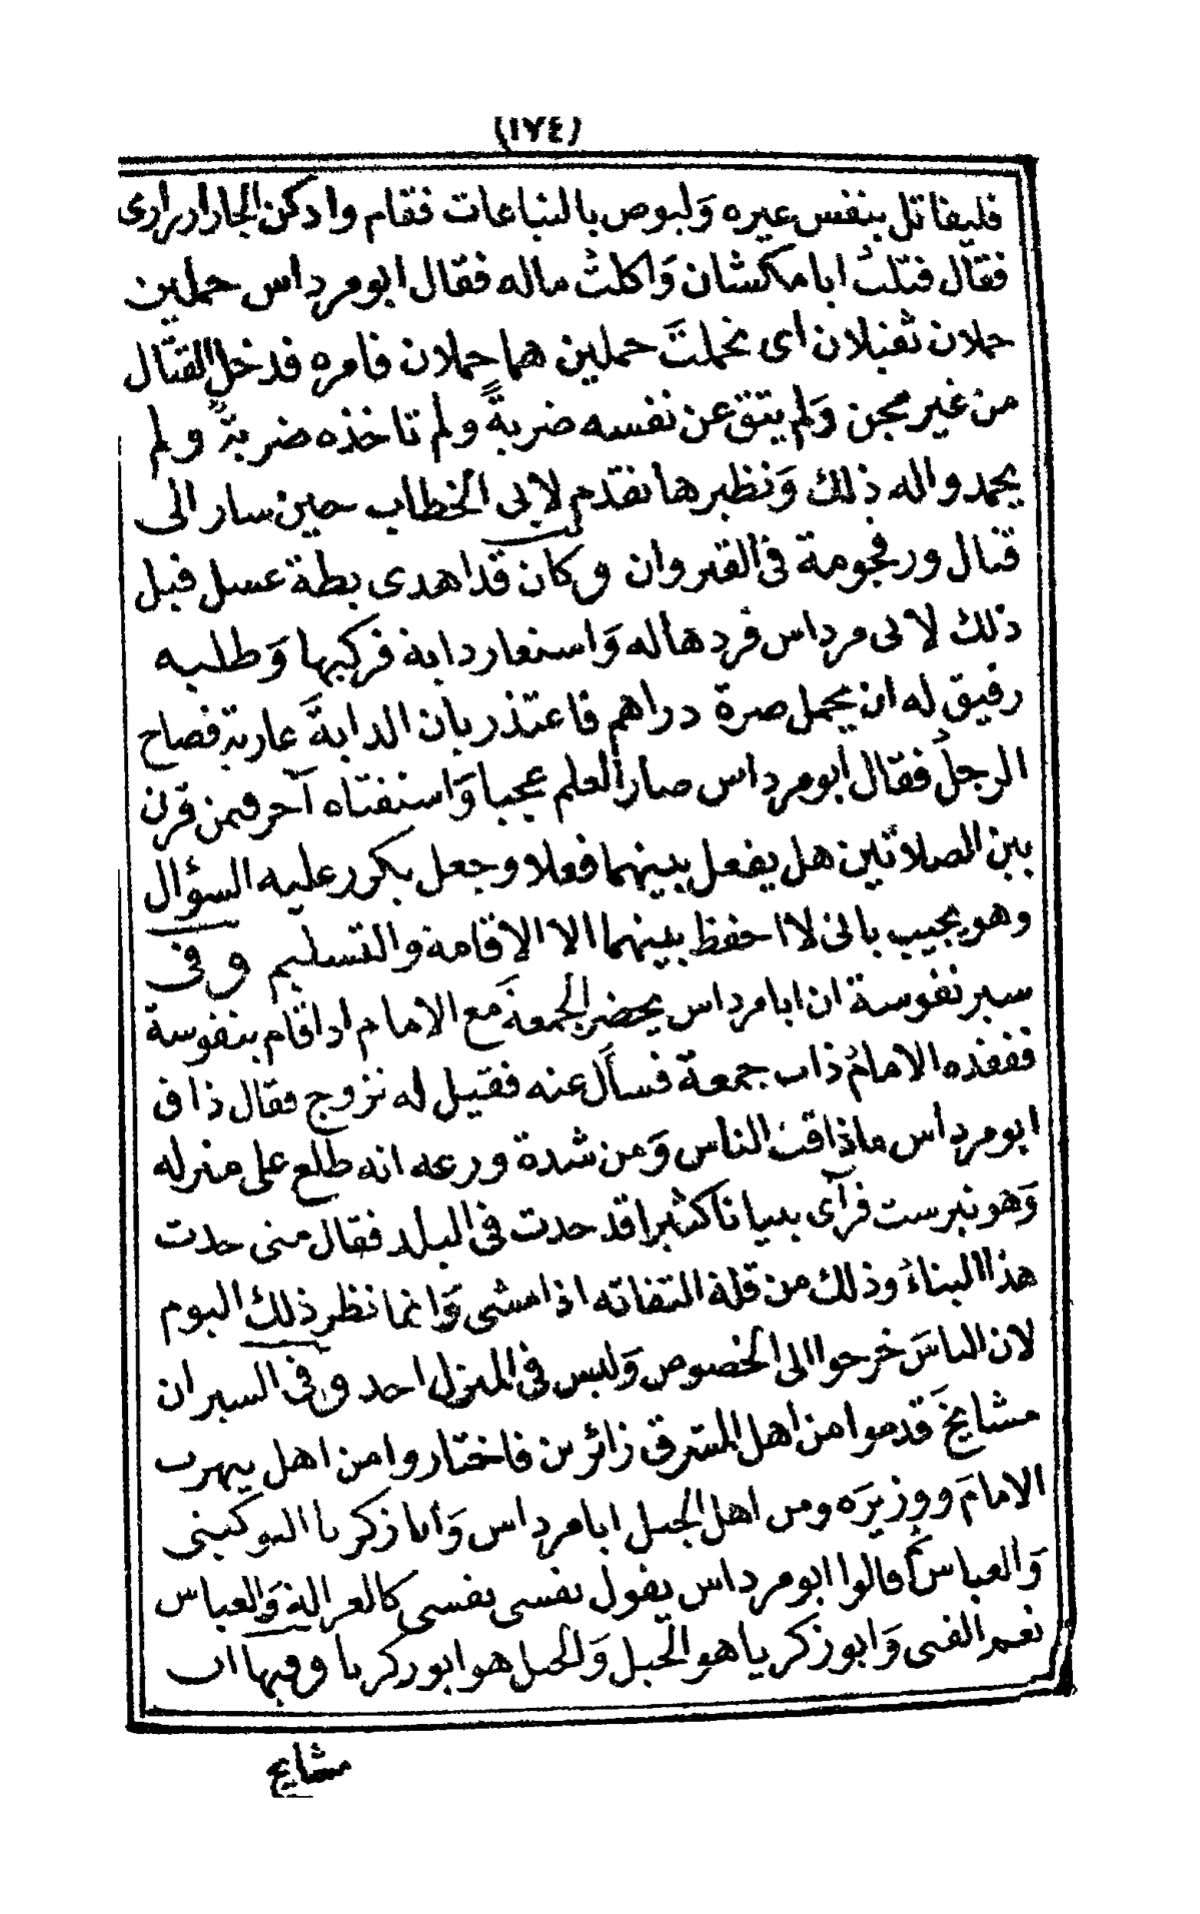 (١٧٤)
فليقاتل بنفس غيره وَلبوص بالنباعات فقام وادكن الجار اراراى
فقال قتلتُ ابا مكشان وَاكلتُ ماله فقال ابو مرداس حملين
حملان ثقيلان اى تحملتَ حملين هما حملان فامره فدخل القتال
من غير مجن وَلم يتق عن نفسه ضربةً ولم تاخذه ضربةٌ ولم
يحمدوا له ذلك وَنظيرها تقدم لابى الخطاب حين سار الى
قتال ورفجومة فى القيروان وكان قد اهدى بطة عسل قبل
ذلك لابى مرداس فردها له وَاستعار دابة فركبها وَطلبه
رفيق له ان يحمل صرة دراهم فاعتذر بان الدابةَ عارية فصاح
الرجلُ فقال ابو مرداس صار العلم عجبا وَاستفتاه آخر فيمن قرن
بين الصلاتين هل يفعل بينهما فعلا وجعل يكرر عليه السؤال
وهو يجيب بانى لا احفظ بينهما الا الاقامة والتسليم وفى
سير نفوسة ان ابا مرداس يحضر الجمعةَ مع الامام اذا قام بنفوسة
ففقده الامامُ ذات جمعة فسأل عنه فقيل له تزوج فقال ذاق
ابو مرداس ماذاقت الناس وَمن شدة ورعه انه طلع على منزله
وَهو نبرست فرآى بنيانا كثيرا قد حدث فى البلد فقال متى حدث
هذا البناءُ وذلك من قلة التفاته اذا مشى وَانما نظر ذلك اليوم
لان الناسَ خرجوا الى الخصوص وَليس فى المنزل احد وفى السير ان
مشايخَ قدموا من اهل المشرق زائرين فاختاروا من اهل تيهرت
الامامَ ووزيرَه ومن اهل الجبل ابا مرداس وَابا زكريا التوكيتى
وَالعباسَ ثم قالوا ابو مرداس يقول نفسى نفسى كالغزالة وَالعباس
نعم الفتى وَابو زكريا هو الجبل وَالجبل هو ابو زكريا وفيها ان
مشايخ